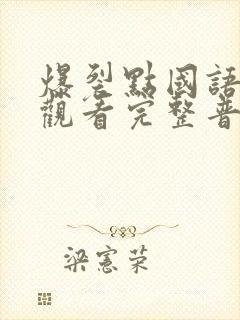 爆裂點國語
觀看完整普
梁憲荣